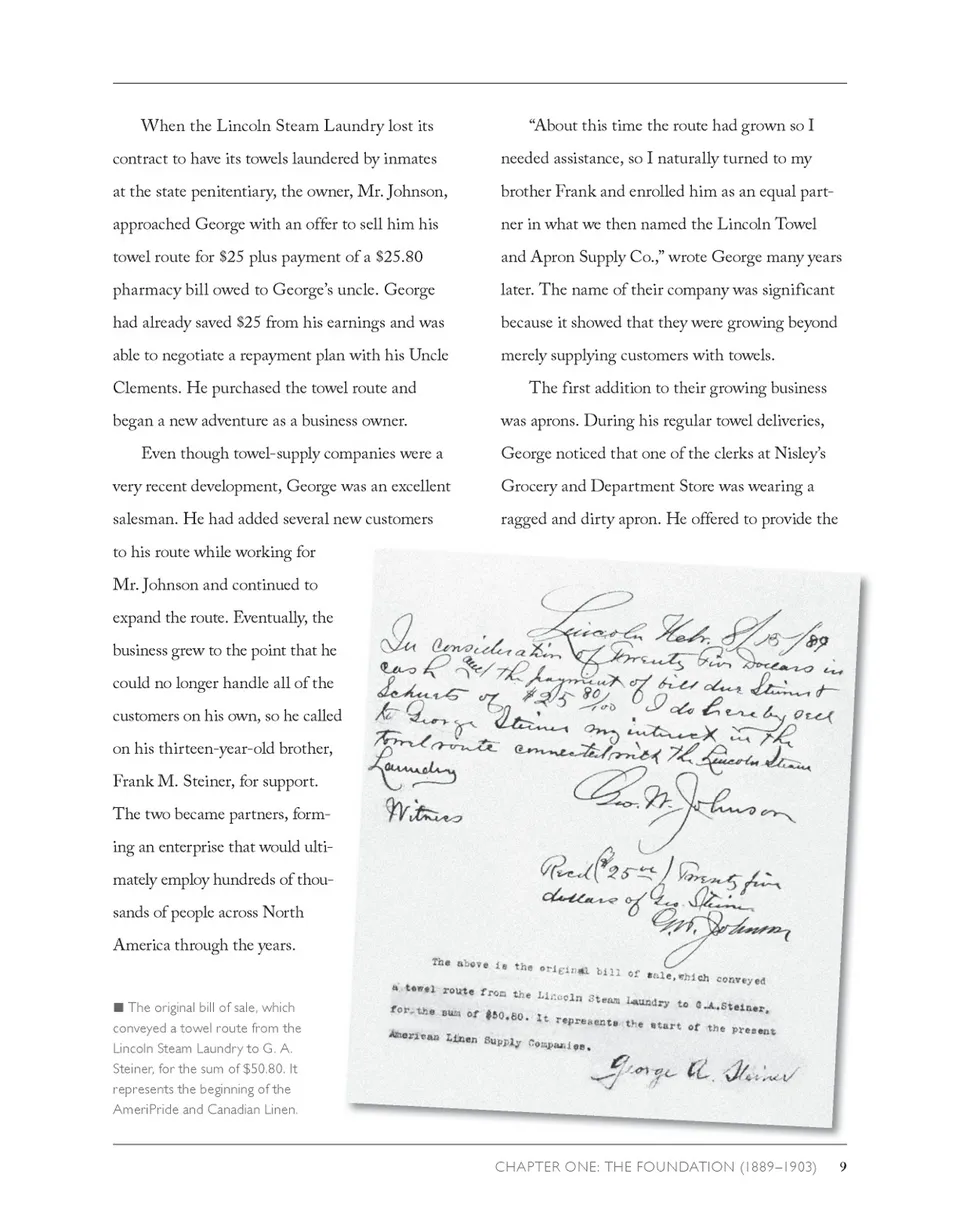 When the Lincoln Steam Laundry lost its
contract to have its towels laundered by inmates
at the state penitentiary, the owner, Mr. Johnson,
approached George with an offer to sell him his
towel route for $25 plus payment of a $25.80
pharmacy bill owed to George’s uncle. George
had already saved $25 from his earnings and was
able to negotiate a repayment plan with his Uncle
Clements. He purchased the towel route and
began a new adventure as a business owner.
Even though towel-supply companies were a
very recent development, George was an excellent
salesman. He had added several new customers
to his route while working for
Mr. Johnson and continued to
expand the route. Eventually, the
business grew to the point that he
could no longer handle all of the
customers on his own, so he called
on his thirteen-year-old brother,
Frank M. Steiner, for support.
The two became partners, form-
ing an enterprise that would ulti-
mately employ hundreds of thou-
sands of people across North
America through the years.
“About this time the route had grown so I
needed assistance, so I naturally turned to my
brother Frank and enrolled him as an equal part-
ner in what we then named the Lincoln Towel
and Apron Supply Co.,” wrote George many years
later. The name of their company was significant
because it showed that they were growing beyond
merely supplying customers with towels.
The first addition to their growing business
was aprons. During his regular towel deliveries,
George noticed that one of the clerks at Nisley’s
Grocery and Department Store was wearing a
ragged and dirty apron. He offered to provide the
Lincoln Nebr. 8/15/89
In consideration of Twenty Five Dollars in
cash and the payment of bill due Steiner &
Schuets of $25 80/100 I do hereby sell
to George Steiner my interest in the
towel route connected with the Lincoln Steam
Laundry
Geo. W. Johnson
Witness
Recd ($25 00) Twenty five
dollars of Geo. Steiner
G.W. Johnson
The above is the original bill of sale,which conveyed
a towel route from the Lincoln Steam Laundry to G.A.Steiner,
for the sum of $50.80. It represents the start of the present
American Linen Supply Companies.
George A. Steiner
■ The original bill of sale, which
conveyed a towel route from the
Lincoln Steam Laundry to G. A.
Steiner, for the sum of $50.80. It
represents the beginning of the
AmeriPride and Canadian Linen.
CHAPTER ONE: THE FOUNDATION (1889–1903) 9